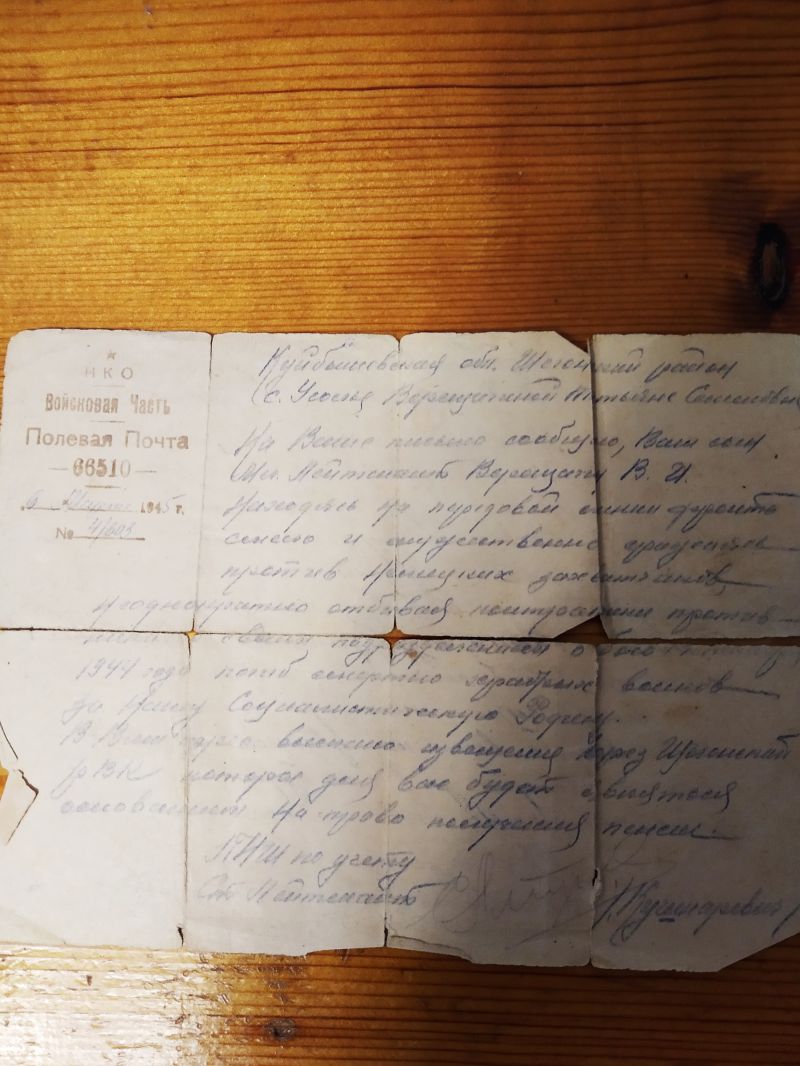 НКО
Войсковая Часть
Полевая Почта
— 66510 —
„6 Марта 1945 г.
№ 4/603
Куйбышевская обл. Шигонский район
с. Усолье Верещагиной Татьяне Семеновне
На Ваше письмо сообщаю, Ваш сын
Мл. Лейтенант Верещагин В. И.
Находясь на передовой линии фронта
смело и мужественно сражался
против Немецких захватчиков,
Неоднократно отбивая контратаки против-
своим подразделением в бою
1944 года погиб смертью храбрых воинов
за Нашу Социалистическую Родину.
В Ваш адрес выслано извещение через Шигонский
РВК которое для вас будет являться
основанием на право получения пенсии.
ПНШ по учету
Ст. Лейтенант
Кушнаревич